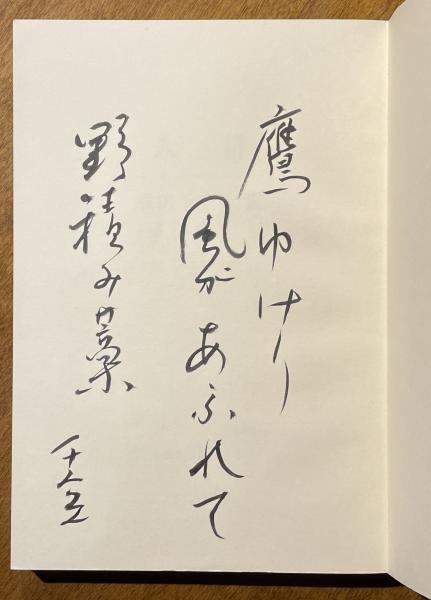 鷹ゆけり
風があふれて
野積み藁
千空